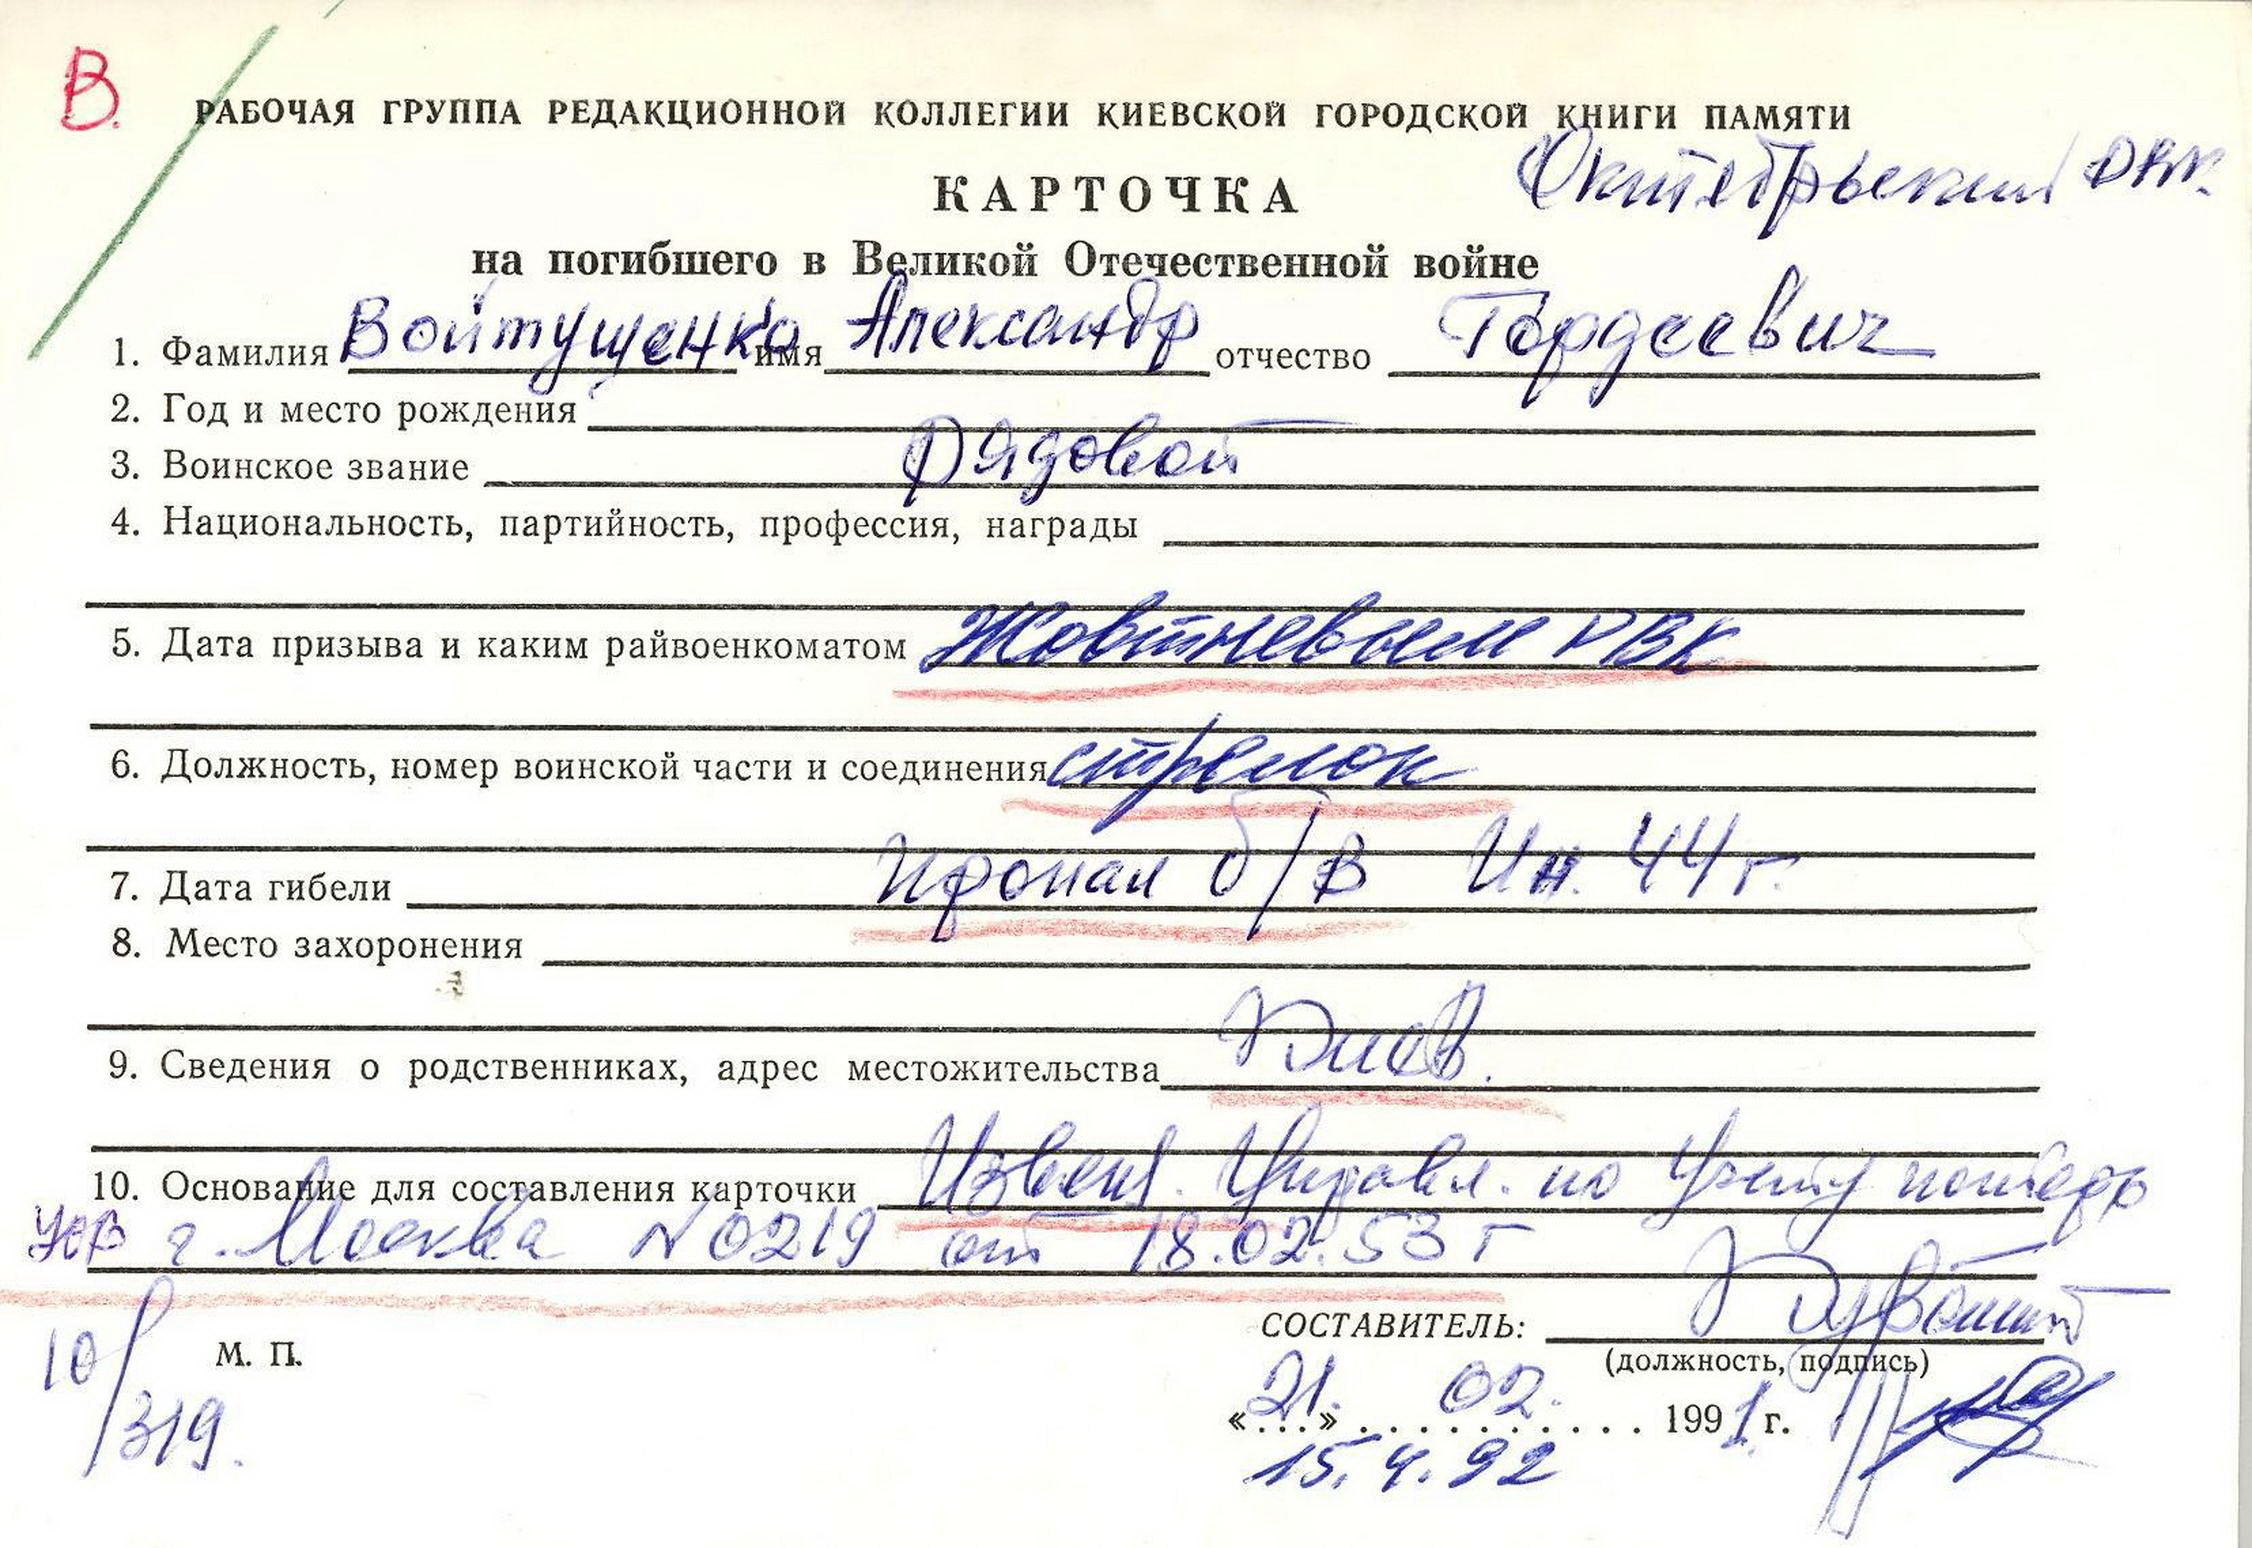 В.
РАБОЧАЯ ГРУППА РЕДАКЦИОННОЙ КОЛЛЕГИИ КИЕВСКОЙ ГОРОДСКОЙ КНИГИ ПАМЯТИ
Октябрьский РВК.
КАРТОЧКА
на погибшего в Великой Отечественной войне
1. Фамилия Войтущенко имя Александр отчество Гордеевич
2. Год и место рождения
3. Воинское звание Рядовой
4. Национальность, партийность, профессия, награды
5. Дата призыва и каким райвоенкоматом Жовтневым РВК
6. Должность, номер воинской части и соединения стрелок
7. Дата гибели Пропал б/в 44 г.
8. Место захоронения
9. Сведения о родственниках, адрес местожительства Киев.
10. Основание для составления карточки Извещ. Управл. по учету потерь
г. Москва № 0219 от 18.02.53 г
СОСТАВИТЕЛЬ:
М. П.
(должность, подпись)
10/319.
«21.» 02. 1991 г.
15.4.92